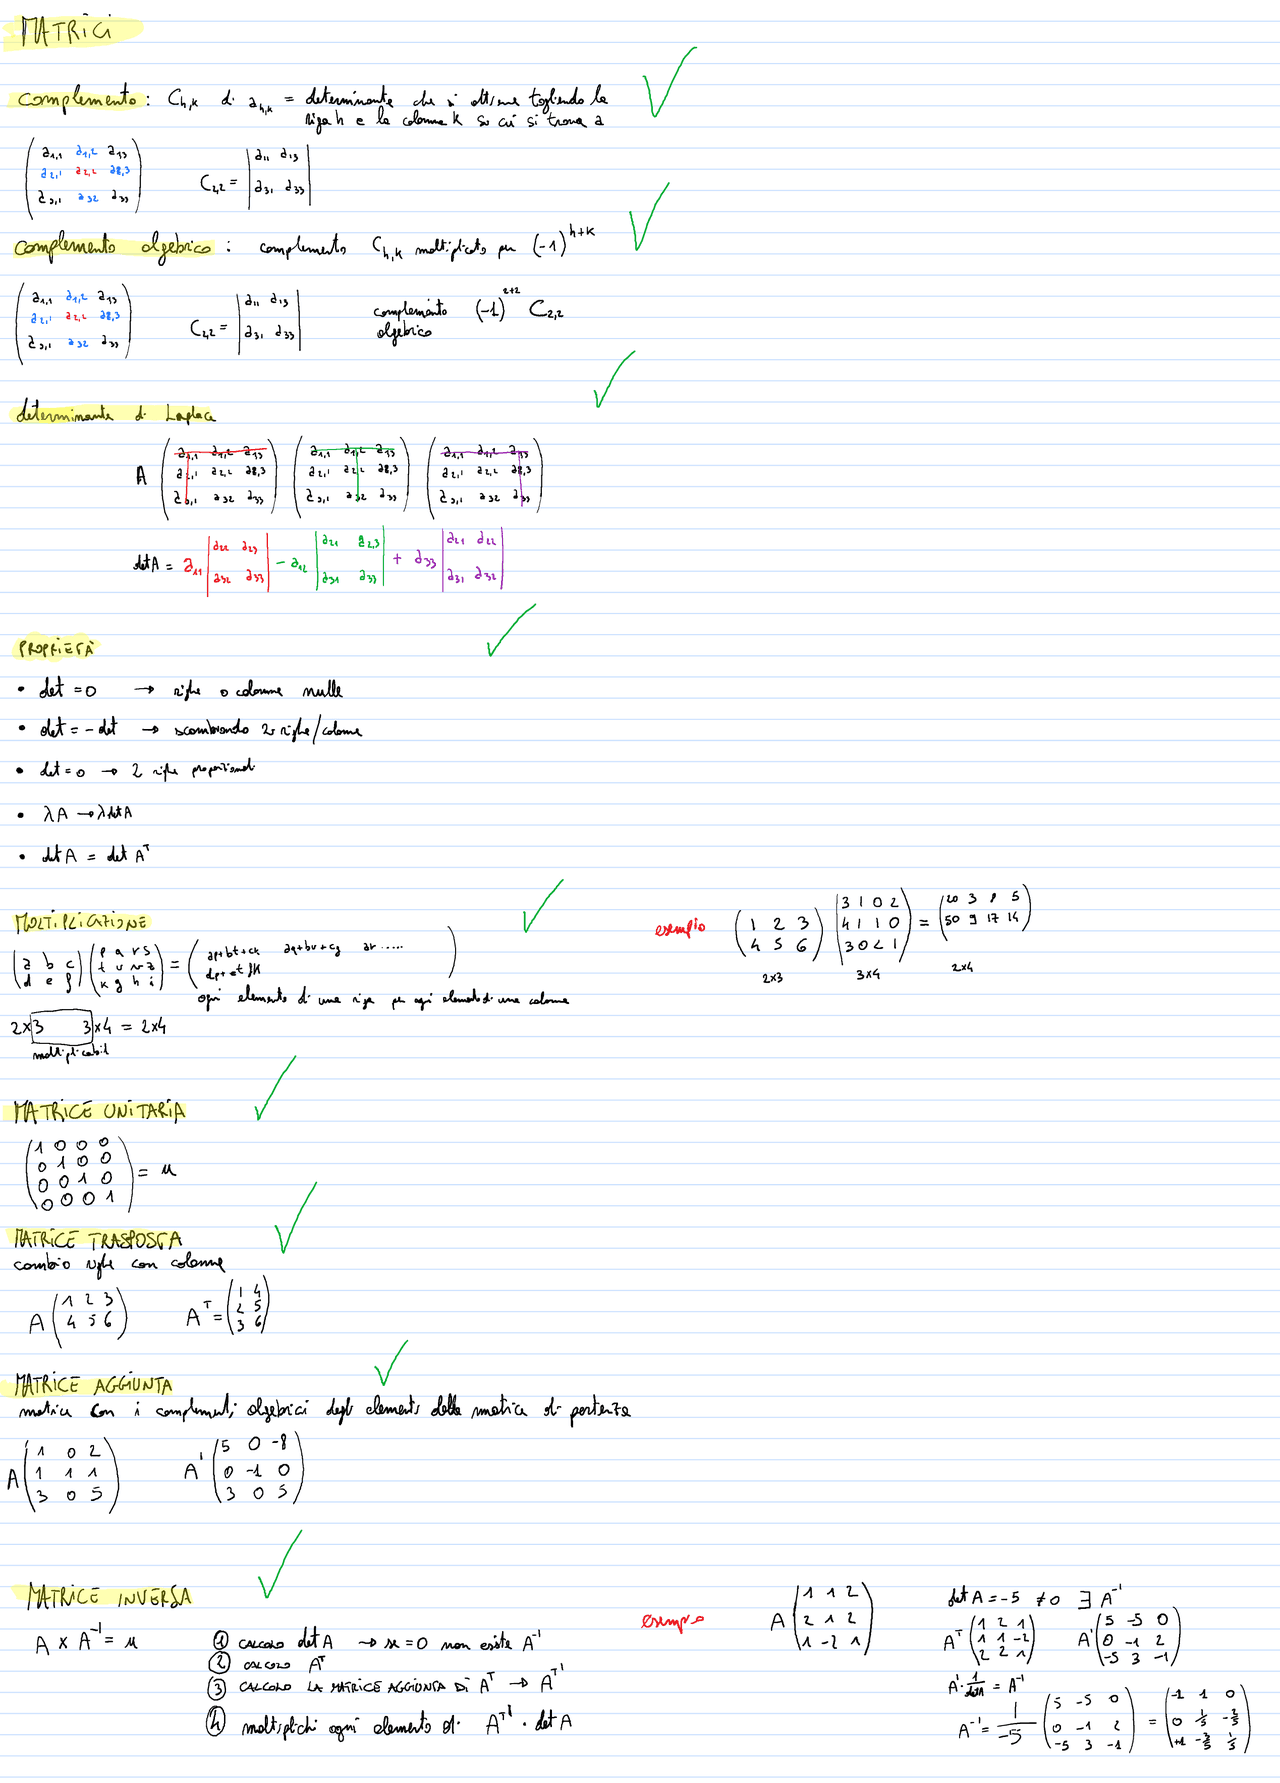 MATRICI
complemento : C h,k di a h,k = determinante che si ottiene togliendo la
riga h e la colonna k su cui si trova a
a1,1 a1,2 a13
a2,1 a2,2 a2,3
a3,1 a32 a33
C2,2 = | a11 a13
a31 a33 |
complemento algebrico : complemento C h,k moltiplicato per (-1)^h+k
a1,1 a1,2 a13
a2,1 a2,2 a2,3
a3,1 a32 a33
C2,2 = | a11 a13
a31 a33 |
complemento (-1)^2+2 C2,2
algebrico
determinante di Laplace
A ( a1,1 a1,2 a13 ) ( a1,1 a1,2 a13 ) ( a1,1 a1,2 a13 )
a2,1 a2,2 a2,3 a2,1 a2,2 a2,3 a2,1 a2,2 a2,3
a3,1 a32 a33 a3,1 a32 a33 a3,1 a32 a33
det A = a11 | a22 a23 | - a12 | a21 a2,3 | + a33 | a21 a22 |
a32 a33 a31 a33 a31 a32
PROPRIETÀ
• det = 0 → righe o colonne nulle
• det = - det → scambiando 2 righe/colonne
• det = 0 → 2 righe proporzionali
• λA → λ det A
• det A = det A^T
MOLTIPLICAZIONE
( a b c ) ( p q r s ) = ( ap+bt+ck aq+bu+cg ar ..... )
d e f t u v z dp+et fk
k g h i
ogni elemento di una riga per ogni elemento di una colonna
2x3 3x4 = 2x4
moltiplicabili
esempio
( 1 2 3 ) ( 3 1 0 2 ) = ( 20 3 8 5 )
4 5 6 4 1 1 0 50 9 17 14
3 0 2 1
2x3 3x4 2x4
MATRICE UNITARIA
1 0 0 0
0 1 0 0
0 0 1 0
0 0 0 1
= u
MATRICE TRASPOSTA
cambio righe con colonne
A ( 1 2 3 ) A^T = ( 1 4 )
4 5 6 2 5
3 6
MATRICE AGGIUNTA
matrice con i complementi algebrici degli elementi della matrice di partenza
A ( 1 0 2 ) A' ( 5 0 -8 )
1 1 1 0 -1 0
3 0 5 3 0 5
MATRICE INVERSA
A x A^-1 = u
① CALCOLO det A → se = 0 non esiste A^-1
② CALCOLO A^T
③ CALCOLO LA MATRICE AGGIUNTA DI A^T → A^T'
④ moltiplichi ogni elemento di A^T' · det A
esempio
A ( 1 1 2 )
2 1 2
1 -2 1
det A = -5 ≠ 0 ∃ A^-1
A^T ( 1 2 1 ) A' ( 5 -5 0 )
1 1 -2 0 -1 2
2 2 1 -5 3 -1
A' · 1/det A = A^-1
A^-1 = 1/-5 ( 5 -5 0 ) = ( -1 1 0 )
0 -1 2 0 1/5 -2/5
-5 3 -1 +1 -3/5 1/5